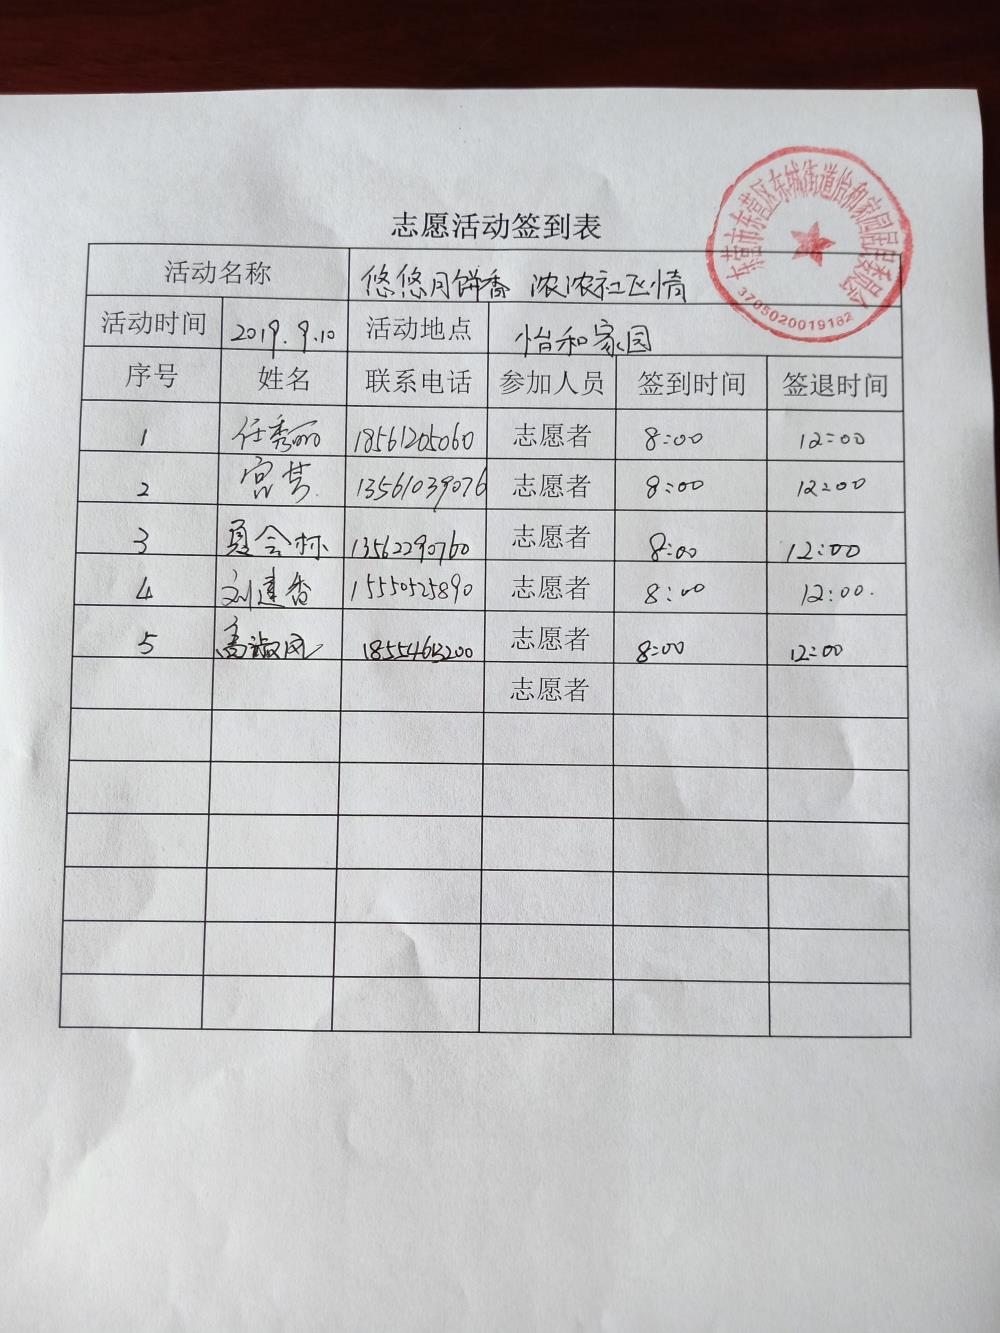 东营市东营区东城街道怡和家园居民委员会
3705020019182
志愿活动签到表
活动名称 悠悠月饼香 浓浓社区情
活动时间 2019.9.10 活动地点 怡和家园
序号 姓名 联系电话 参加人员 签到时间 签退时间
1 任秀丽 18561205060 志愿者 8:00 12:00
2 宫芸 13561039076 志愿者 8:00 12:00
3 夏会林 13562290760 志愿者 8:00 12:00
4 刘建香 15550525890 志愿者 8:00 12:00.
5 高淑凤 志愿者 8:00 12:00
志愿者